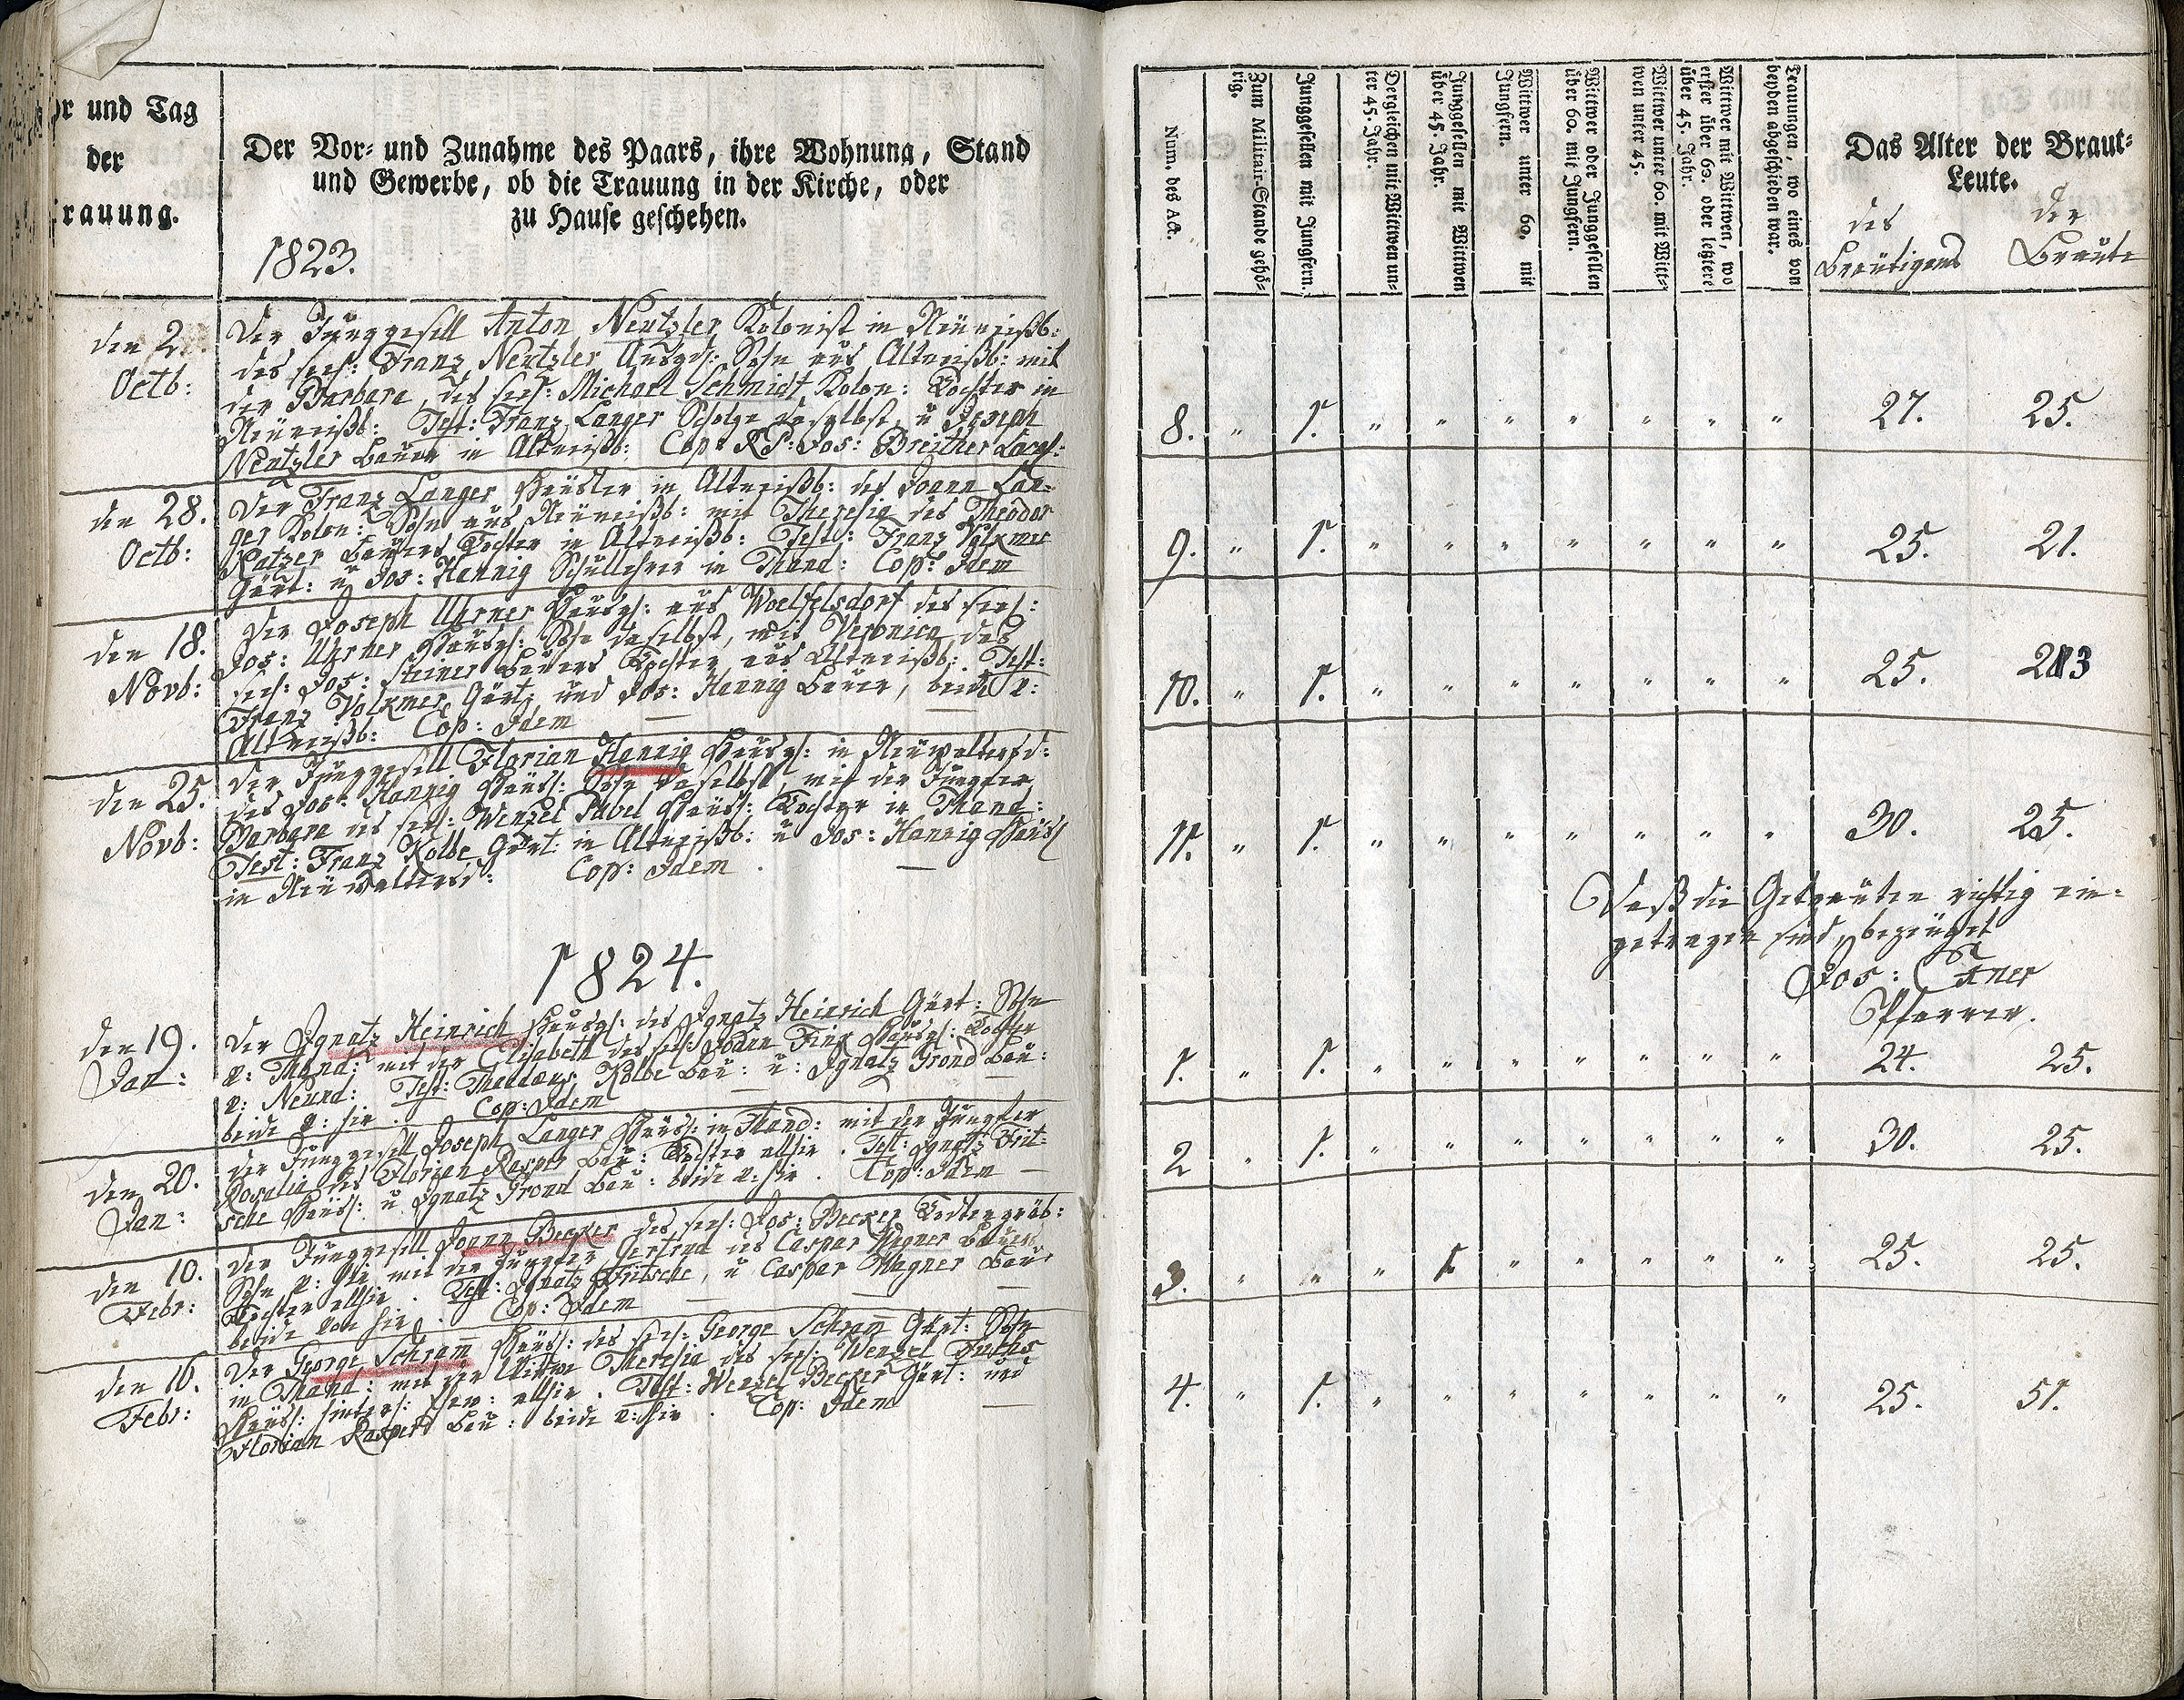 or und Tag
der
rauung.
Der Vor- und Zunahme des Paars, ihre Wohnung, Stand
und Gewerbe, ob die Trauung in der Kirche, oder
zu Hause geschehen.
1823.
den 2
Octb:
Der Junggesell Anton Neutzler Kolonist in Neüweißb:
des seel: Franz Neutzler Sohn aus Altweißb: mit
der Barbara, des seel: Michael Schmidt Kolon: Tochter in
Neüweißb: Test: Franz Langer Scholze daselbst, u Joseph
Neutzler Bauer in Altweißb: Cop: Jos: Breither
den 28.
Octb:
Der Franz Langer Häusler in Altweißb: des Joann Lan-
ger Kolon: Sohn aus Neüweißb: mit Theresia des Theodor
Ratzer Bauers Tochter in Altweißb: Test: Franz Volkmer
Gärt: u Jos: Hannig Schullehrer in Thand: Cop: Idem
den 18.
Novb:
Der Joseph Uhrner Häusl: aus Woelfelsdorf des seel:
Jos: Uhrner Häusl: Sohn daselbst, mit Veronica des
seel: Jos: Steiner Bauers Tochter aus Altweißb: Test:
Franz Volkmer Gärt: und Jos: Hannig Bauer, beide v:
Altweißb: Cop: Idem
den 25.
Novb:
Der Junggesell Florian Hannig Häusl: in Neüwaltersd:
des Jos: Hannig Häusl: Sohn daselbst, mit der Jungfer
Barbara des seel: Wenzel Pavel Häusl: Tochter in Thand:
Test: Franz Kolbe Gärt: in Altweißb: u Jos: Hannig Häusl
in Neüwaltersd: Cop: Idem
1824.
den 19.
Jan:
Der Ignatz Heinrich Häusl: des Ignatz Heinrich Gärt: Sohn
v: Thand: mit der Elisabeth des seel: Joann Häusl: Tochter
v: Neund: Test: Thadaeus Kolbe Bau: u: Ignatz Grond Bau:
beide v: hir. Cop: Idem
den 20.
Jan:
Der Junggesell Joseph Langer Häusl: in Thand: mit der Jungfer
Rosalia des Florian Rasper Bau: Tochter allhir. Test: Ignatz Frit-
sche Häusl: u Ignatz Grond Bau: beide v: hir. Cop: Idem
den 10.
Febr:
Der Junggesell Joann Becker des seel: Jos: Becker Todtengräb:
Sohn mit der Jungfer Gertrud des Caspar Wagner Bauers
Tochter allhir. Test: Ignatz Fritsche, u Caspar Wagner Bau:
beide von hir. Cop: Idem
den 16.
Febr:
Der George Schram̅ Häusl: des seel: George Schram̅ Gärt: Sohn
in Thand: mit der Wittwe Theresia des seel: Wenzel
Häusl: hinterl: Ehew: allhir. Test: Wenzel Becker Gärt: und
Florian Raspert Bau: beide v: hir. Cop: Idem
Num. des Act.
Zum Militair-Stande gehö-
rig.
Junggesellen mit Jungfern.
Dergleichen mit Wittwen un-
ter 45. Jahr.
Junggesellen mit Wittwen
über 45. Jahr.
Wittwer unter 60. mit
Jungfern.
Wittwer oder Junggesellen
über 60. mit Jungfern.
Wittwer unter 60. mit Witt-
wen unter 45.
Wittwer mit Wittwen, wo
erster über 60. oder letztere
über 45. Jahr.
Trauungen, wo eines von
beyden abgeschieden war.
Das Alter der Braut-
Leute.
des
Bräutigams
der
Bräute
8. " 1. " " " " " " " 27. 25.
9. " 1. " " " " " " " 25. 21.
10. " 1. " " " " " " " 25. 23
11. " 1. " " " " " " " 30. 25.
Daß die Getrauten richtig ein-
getragen sind, bezeuget
Jos:
Pfarrer.
1. " 1. " " " " " " " 24. 25.
2 " 1. " " " " " " " 30. 25.
3. " " " 1. " " " " " 25. 25.
4. " 1. " " " " " " " 25. 51.